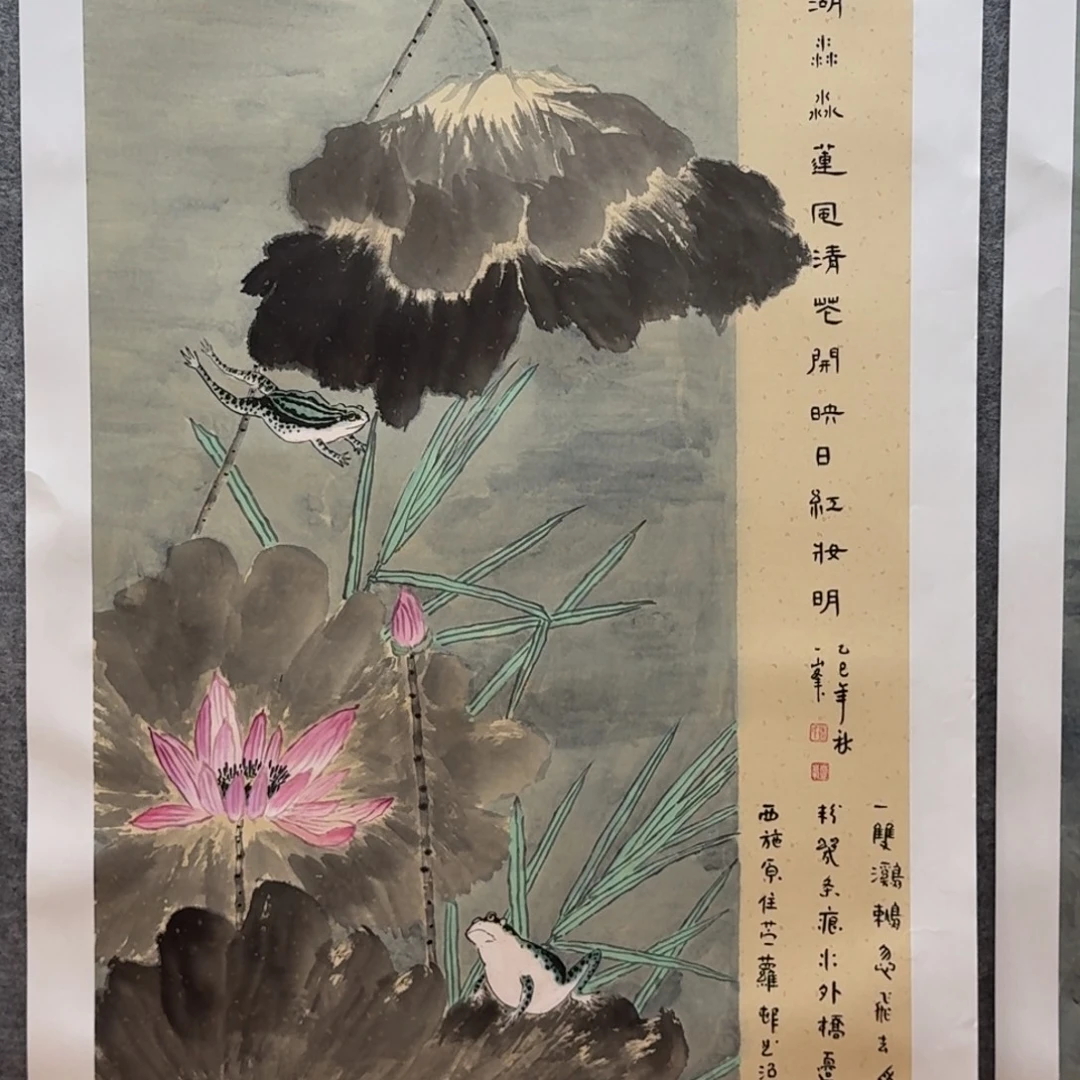 湖淼淼蓮風清花開映日紅妝明
乙巳年秋
一峯
一雙鸂鶒忽飛去
粉翠痕水外橋邊
西施原住苎蘿邨